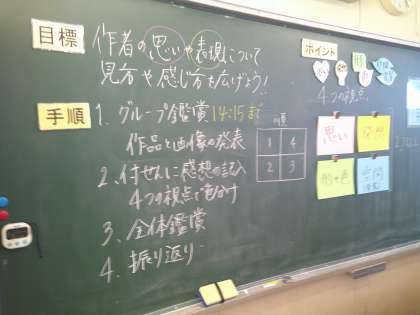 目標
作者の思いや表現について
見方や感じ方を広げよう!
手順
1. グループ鑑賞 14:15まで
作品と画像の発表
2. 付せんに感想の記入
4つの視点で色分け
3. 全体鑑賞
4. 振り返り
1 4
2 3
ポイント
4つの視点
思い
発想
形や色
空間